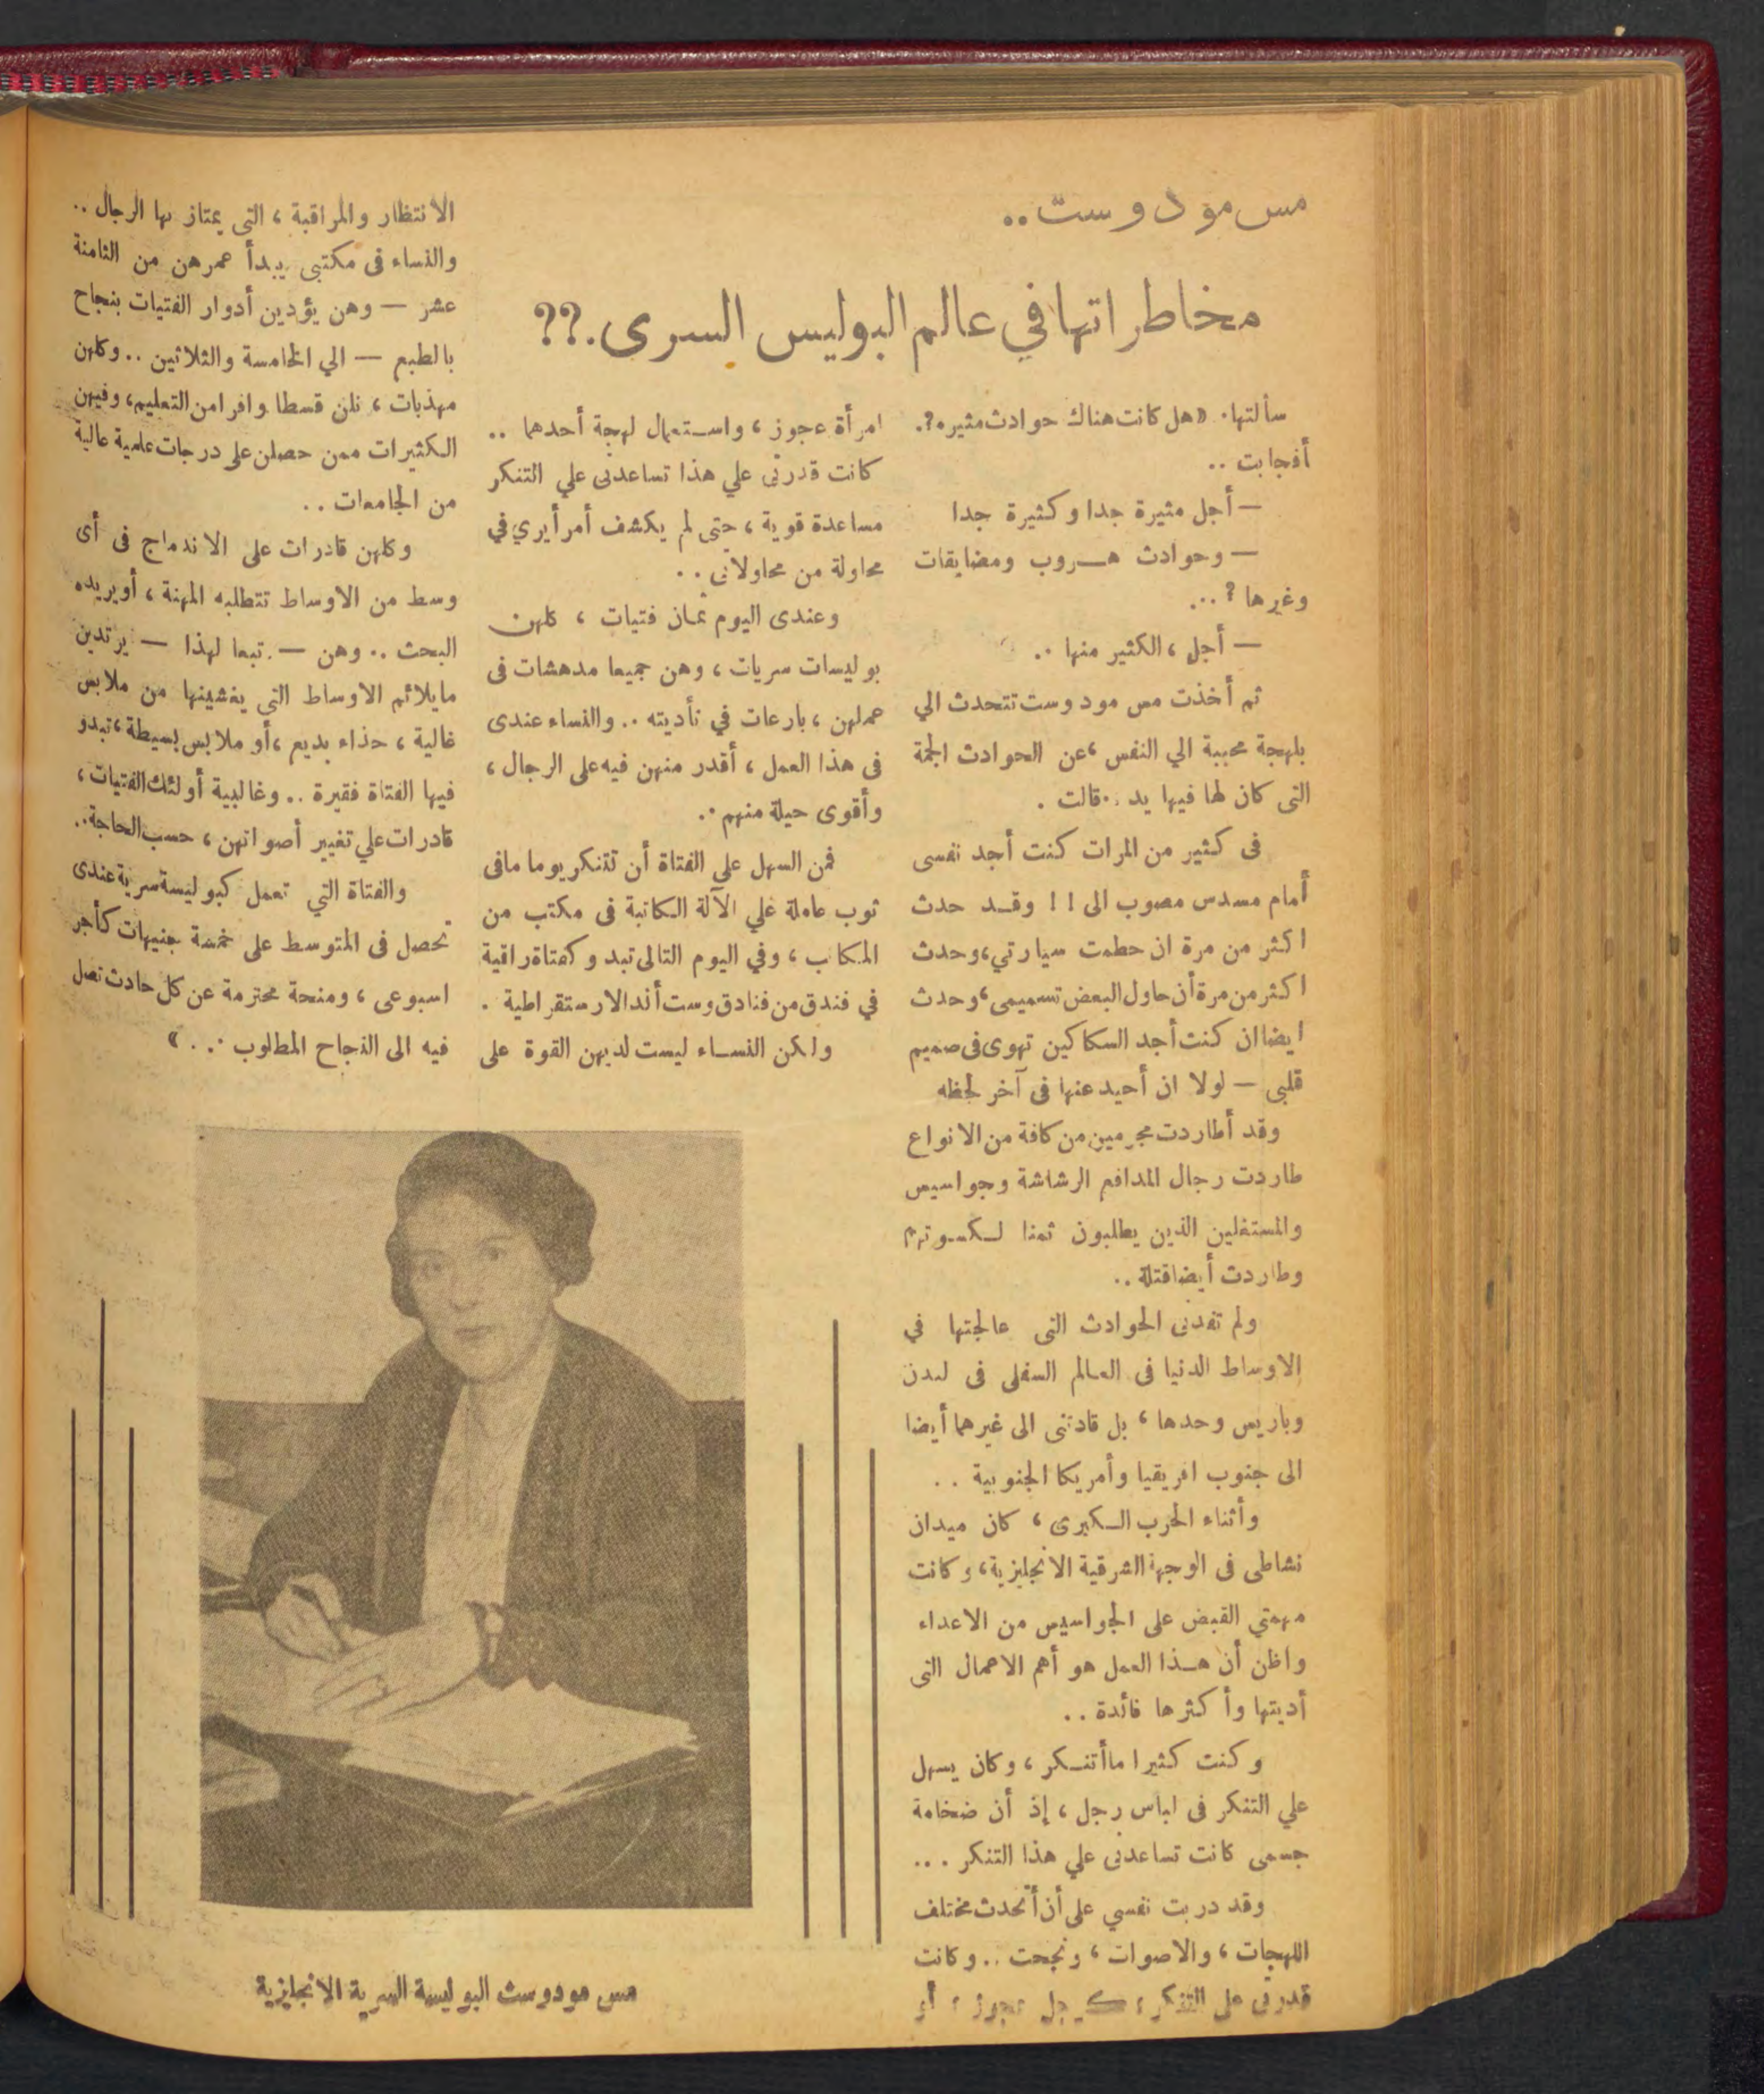 مس مود وست..
مخاطراتها في عالم البوليس السرى.??
سألتها. «هل كانت هناك حوادث مثيره?.
أفجابت ..
— أجل مثيرة جدا وكثيرة جدا
— وحوادث هـروب ومضايقات
وغيرها ? ...
— أجل ، الكثير منها ..
ثم أخذت مس مود وست تتحدث الي
بلهجة محببة الي النفس ، عن الحوادث الجمة
التى كان لها فيها يد .. قالت .
فى كثير من المرات كنت أجد نفسى
أمام مسدس مصوب الى ! ! وقـد حدث
اكثر من مرة ان حطمت سيارتي ، وحدث
اكثر من مرة أن حاول البعض تسميمى ، وحدث
ايضا ان كنت أجد السكاكين تهوى فى صميم
قلبى — لولا ان أحيد عنها فى آخر لحظه
وقد أطاردت مجرمين من كافة من الانواع
طاردت رجال المدافع الرشاشة وجواسيس
والمستغلين الذين يطلبون ثمنا لـكـوتهم
وطاردت أيضا قتلة ..
ولم تقدنى الحوادث التى عالجتها في
الاوساط الدنيا فى العالم السفلى فى لندن
وباريس وحدها ، بل قادتنى الى غيرهما أيضا
الى جنوب افريقيا وأمريكا الجنوبية . .
وأثناء الحرب الـكبرى ، كان ميدان
نشاطى فى الوجهة الشرقية الانجليزية ، وكانت
مهمتي القبض على الجواسيس من الاعداء
واظن أن هـذا العمل هو أهم الاعمال التى
أديتها وأكثرها فائدة ..
وكنت كثيرا ما أتنـكر ، وكان يسهل
علي التنكر فى لباس رجل ، إذ أن ضخامة
جسمى كانت تساعدنى علي هذا التنكر ...
وقد دربت نفسي على أن أتحدث مختلف
اللهجات ، والاصوات ، ونجحت .. وكانت
قدرتى على التنكر ، كـرجل عجوز ، أو
امرأة عجوز ، واسـتعمال لهجة أحدهما ..
كانت قدرتى علي هذا تساعدنى علي التنكر
مساعدة قوية ، حتى لم يكشف أمرأ يري في
محاولة من محاولاتى . .
وعندى اليوم ثمان فتيات ، كلهن
بوليسات سريات ، وهن جميعا مدهشات فى
عملهن ، بارعات في تأديته .. والنساء عندى
فى هذا العمل ، أقدر منهن فيه على الرجال ،
وأقوى حيلة منهم ..
فمن السهل على الفتاة أن تتنكر يوما مافى
ثوب عاملة علي الآلة الـكاتبة فى مكتب من
المكاتب ، وفي اليوم التالى تبدو كفتاة راقية
في فندق من فنادق وست أند الارستقراطية .
ولكن النسـاء ليست لديهن القوة على
الانتظار والمراقبة ، التى يمتاز بها الرجال ..
والنساء فى مكتبى يبدأ عمرهن من الثامنة
عشر — وهن يؤدين أدوار الفتيات بنجاح
بالطبع — الي الخامسة والثلاثين .. وكلهن
مهذبات ، نلن قسطا وافرا من التعليم ، وفيهن
الـكثيرات ممن حصلن على درجات علمية عالية
من الجامعات ..
وكلهن قادرات على الاندماج فى أى
وسط من الاوساط تتطلبه المهنة ، أو يريده
البحث .. وهن — تبعا لهذا — يرتدين
مايلائم الاوساط التى يغشينها من ملابس
غالية ، حذاء بديع ، أو ملابس بسيطة ، تبدو
فيها الفتاة فقيرة .. وغالبية أولئك الفتيات ،
قادرات علي تغيير أصواتهن ، حسب الحاجة ..
والفتاة التي تعمل كبوليسة سرية عندى
تحصل فى المتوسط على خمسة جنيهات كأجر
اسبوعى ، ومنحة محترمة عن كل حادث تصل
فيه الى النجاح المطلوب .. . »
مس مود وست البوليسة السرية الانجليزية